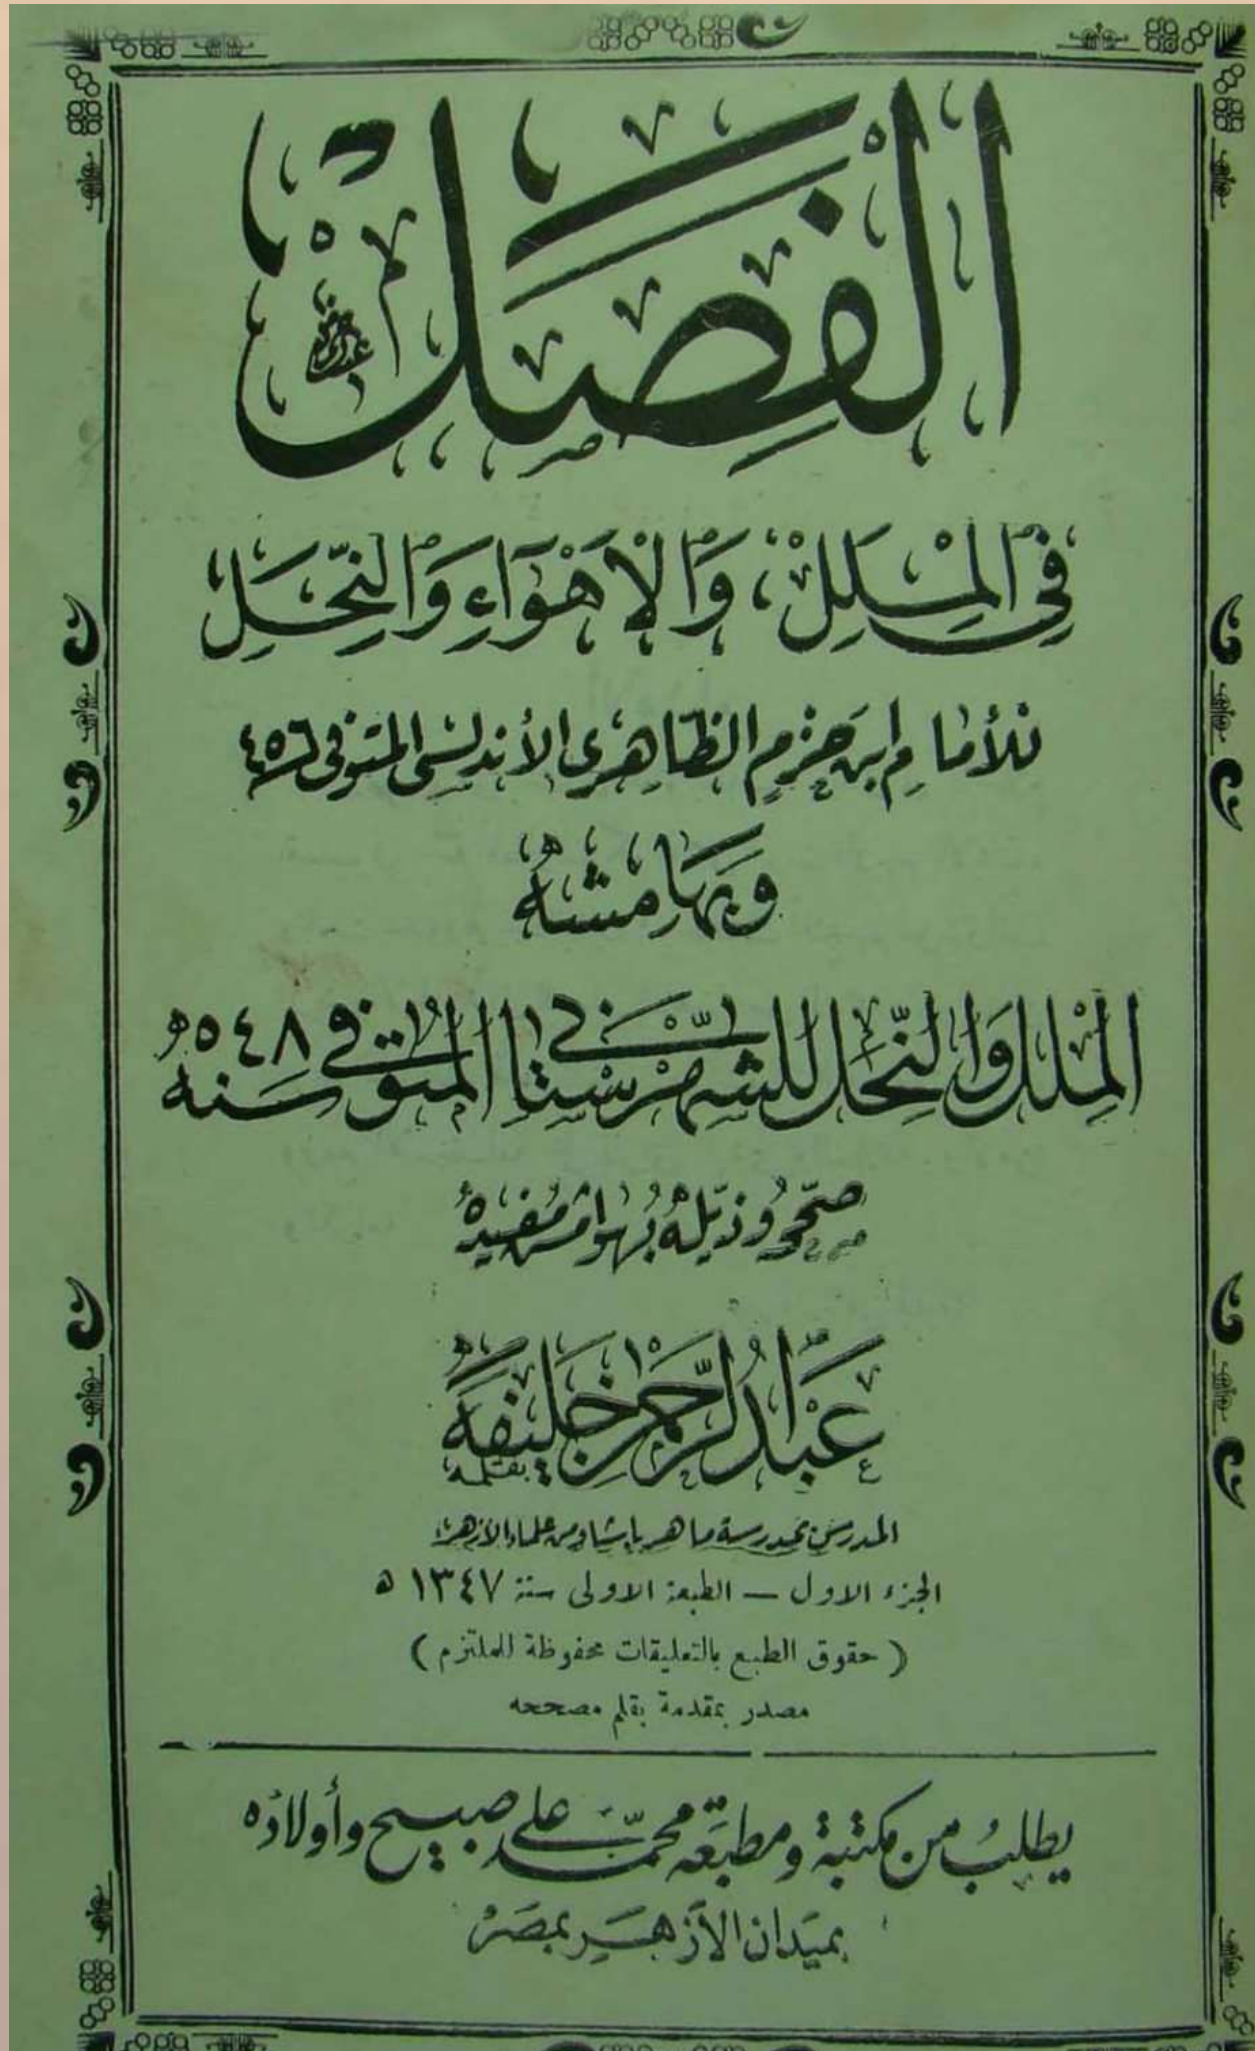 الفِصَل
في المِلَلِ، وَالأَهْوَآءِ وَالنِّحَلِ
للأمام ابن حزم الظاهري الأندلسي المتوفى ٤٥٦
وبهامشه
المِلل وَالنِّحَل للشهرستاني المتوفى سنه ٥٤٨ ه
صححه وذيله بهوامش مفيده
عَبد الرحمن خليفه
المدرس بمدرسة ماهر باشا ومن علماء الأزهر
الجزء الاول — الطبعة الاولى سنة ١٣٤٧ ه
( حقوق الطبع بالتعليقات محفوظة للملتزم )
مصدر بمقدمة بقلم مصححه
يطلب من مكتبة ومطبعة محمد علي صبيح وأولاده
بميدان الأزهر بمصر